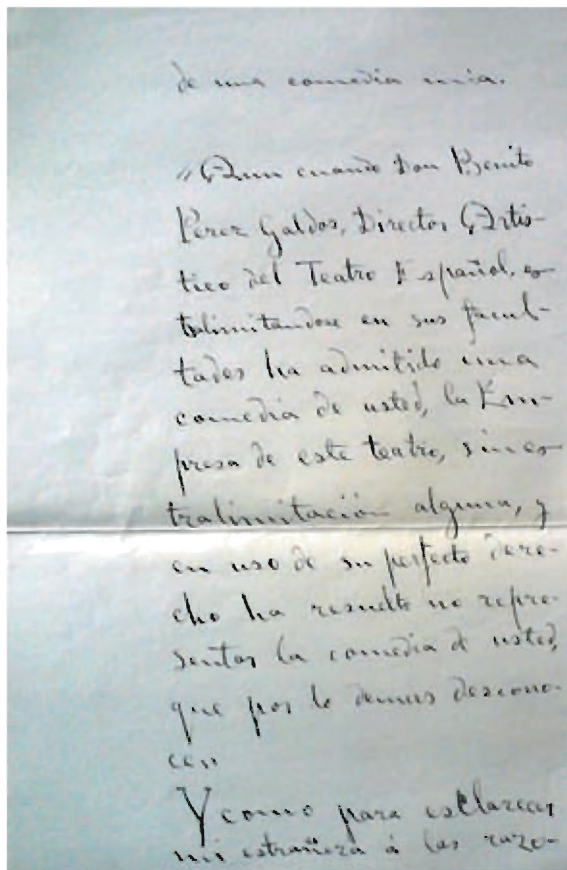 de una comedia mia.
"Aun cuando Don Benito
Perez Galdos, Director Artis-
tico del Teatro Español, es-
tralimitandose en sus facul-
tades ha admitido una
comedia de usted, la Em-
presa de este teatro, sin es-
tralimitación alguna, y
en uso de su perfecto dere-
cho ha resuelto no repre-
sentar la comedia de usted,
que por lo demas descono-
ce"
Y como para esclarecer
mi estrañeza á las razo-